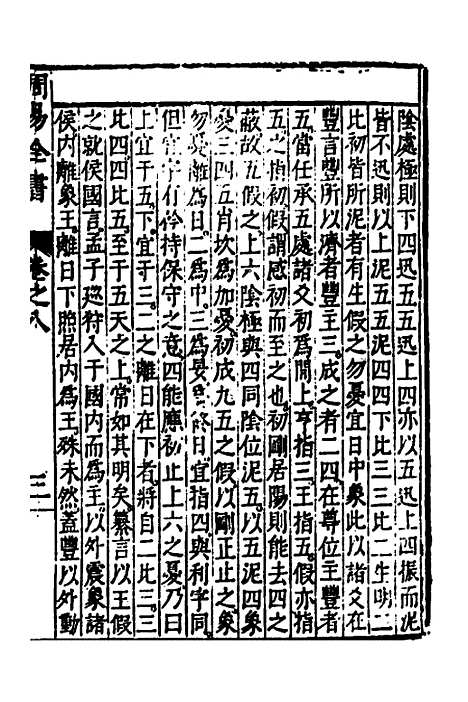 陰處極則下四迅五五迅上四亦以五迅上四振而泥
皆不迅則以上泥五五泥四四下比三三比二生明二
比初皆所泥者有生假之勿憂宜日中象此以諸爻在
豐言豐所以濟者豐主三成之者二四在尊位主豐者
五當任承五處諸爻初爲間上亨指三王指五假亦指
五之指初假謂感初而至之也初剛居陽則能去四之
蔽故五假之上六陰極與四同陰位泥五以五泥四象
憂三四五肖坎爲加憂初成九五之假以剛正止之象
勿憂離爲日二爲中三爲昃日宜指四與利字同
但宜字有矜持保守之意四能應初止上六之憂乃曰
上宜于五下宜于三二之離日在下者將自二比三三
比四四比五至于五天之上常如其明矣纂言以王假
之就侯國言孟子廵狩入于國内而爲主以外震象諸
侯内離象王離日下照居内爲王殊未然葢豐以外動
周易全書
卷之八
三